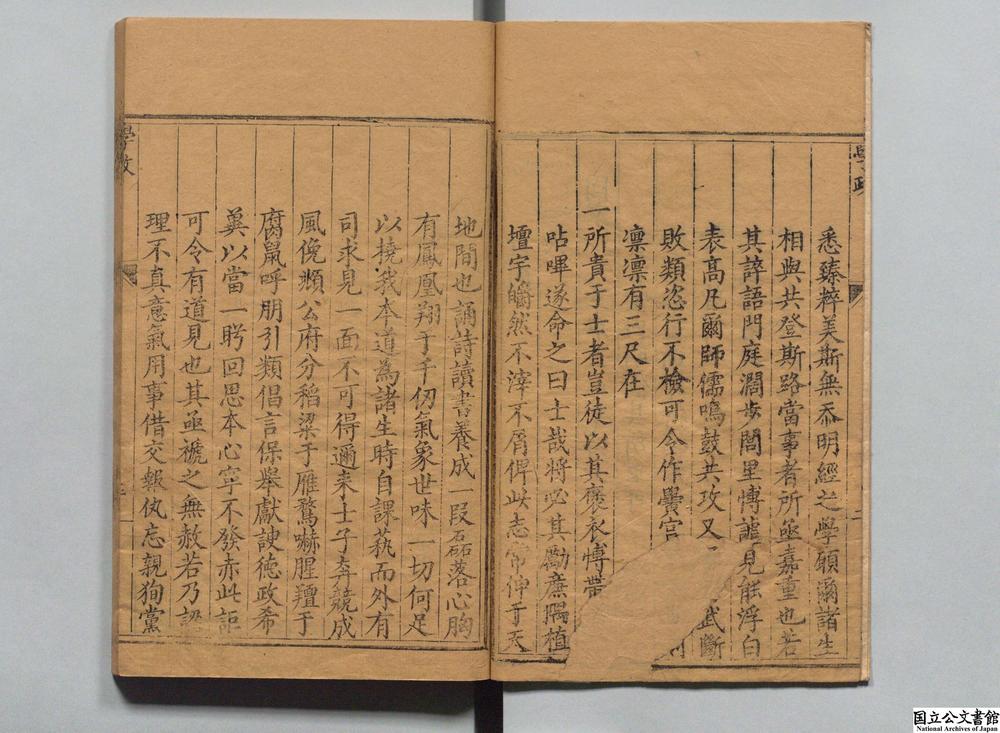 學政
悉臻粹美斯無忝明經之學願爾諸生
相與共登斯路當事者所亟嘉重也若
其誶語門庭濶步閭里慱謔見能浮白
表高凡爾師儒鳴鼓共攻又 武斷
敗類恣行不檢可令作黌宮
凛凛有三尺在
一所貴于士者豈徒以其褒衣慱帶
呫嗶遂命之曰士哉將必其勵廉隅植
壇宇皭然不滓不屑俾此志常伸于天
地間也誦詩讀書養成一段磊落心胸
有鳳凰翔于千仞氣象世味一切何足
以撓我本道為諸生時自課萟而外有
司求見一面不可得邇来士子奔競成
風俛頫公府分稻梁于雁鶩嚇腥羶于
腐鼠呼朋引類倡言保舉獻諛德政希
冀以當一盻回思本心寜不發赤此詎
可令有道見也其亟禠之無赦若乃認
理不真意氣用事借交報仇忘親狥黨
學政
国立公文書館
National Archives of Japan